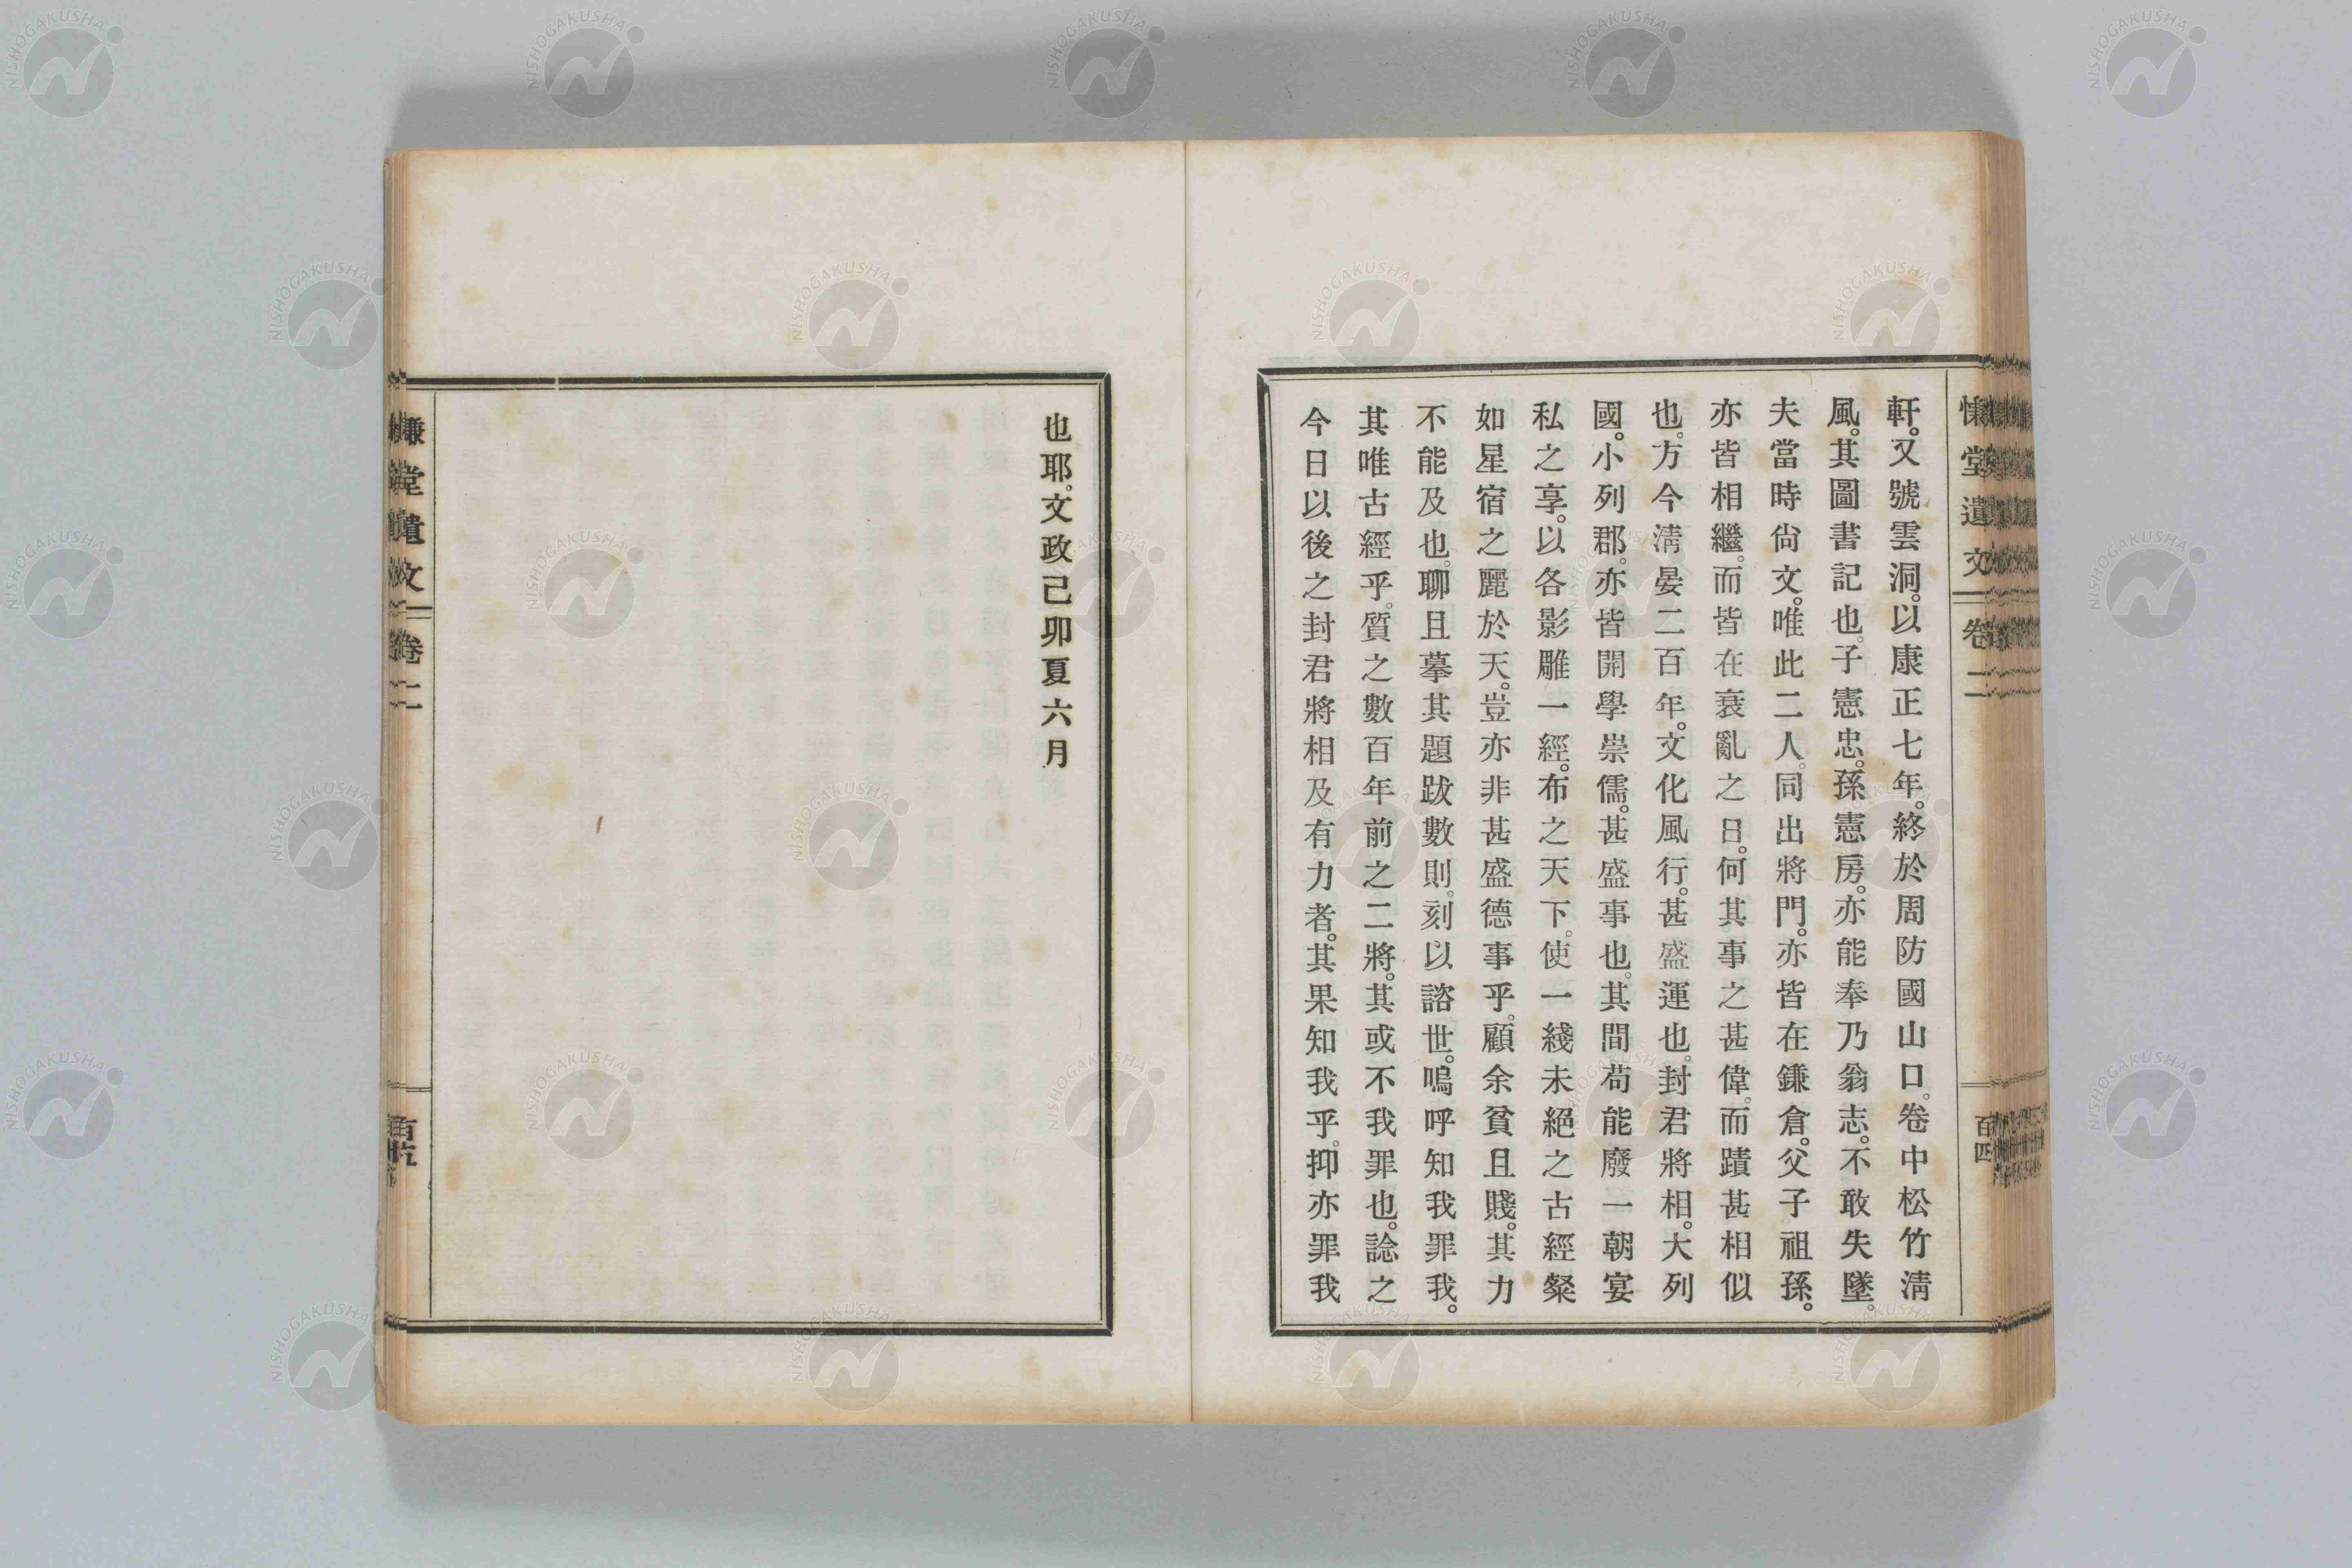 慊堂遺文 卷二 百四
軒。又號雲洞。以康正七年。終於周防國山口。卷中松竹淸
風。其圖書記也。子憲忠。孫憲房。亦能奉乃翁志。不敢失墜。
夫當時尙文。唯此二人。同出將門。亦皆在鎌倉。父子祖孫。
亦皆相繼。而皆在衰亂之日。何其事之甚偉。而蹟甚相似
也。方今淸晏二百年。文化風行。甚盛運也。封君將相。大列
國。小列郡。亦皆開學崇儒。甚盛事也。其間苟能廢一朝宴
私之享。以各影雕一經。布之天下。使一綫未絕之古經粲
如星宿之麗於天。豈亦非甚盛德事乎。顧余貧且賤。其力
不能及也。聊且摹其題跋數則。刻以諮世。嗚呼知我罪我。
其唯古經乎。質之數百年前之二將。其或不我罪也。諗之
今日以後之封君將相及有力者。其果知我乎。抑亦罪我
也耶。文政己卯夏六月
慊堂遺文 卷二
NISHOGAKUSHA